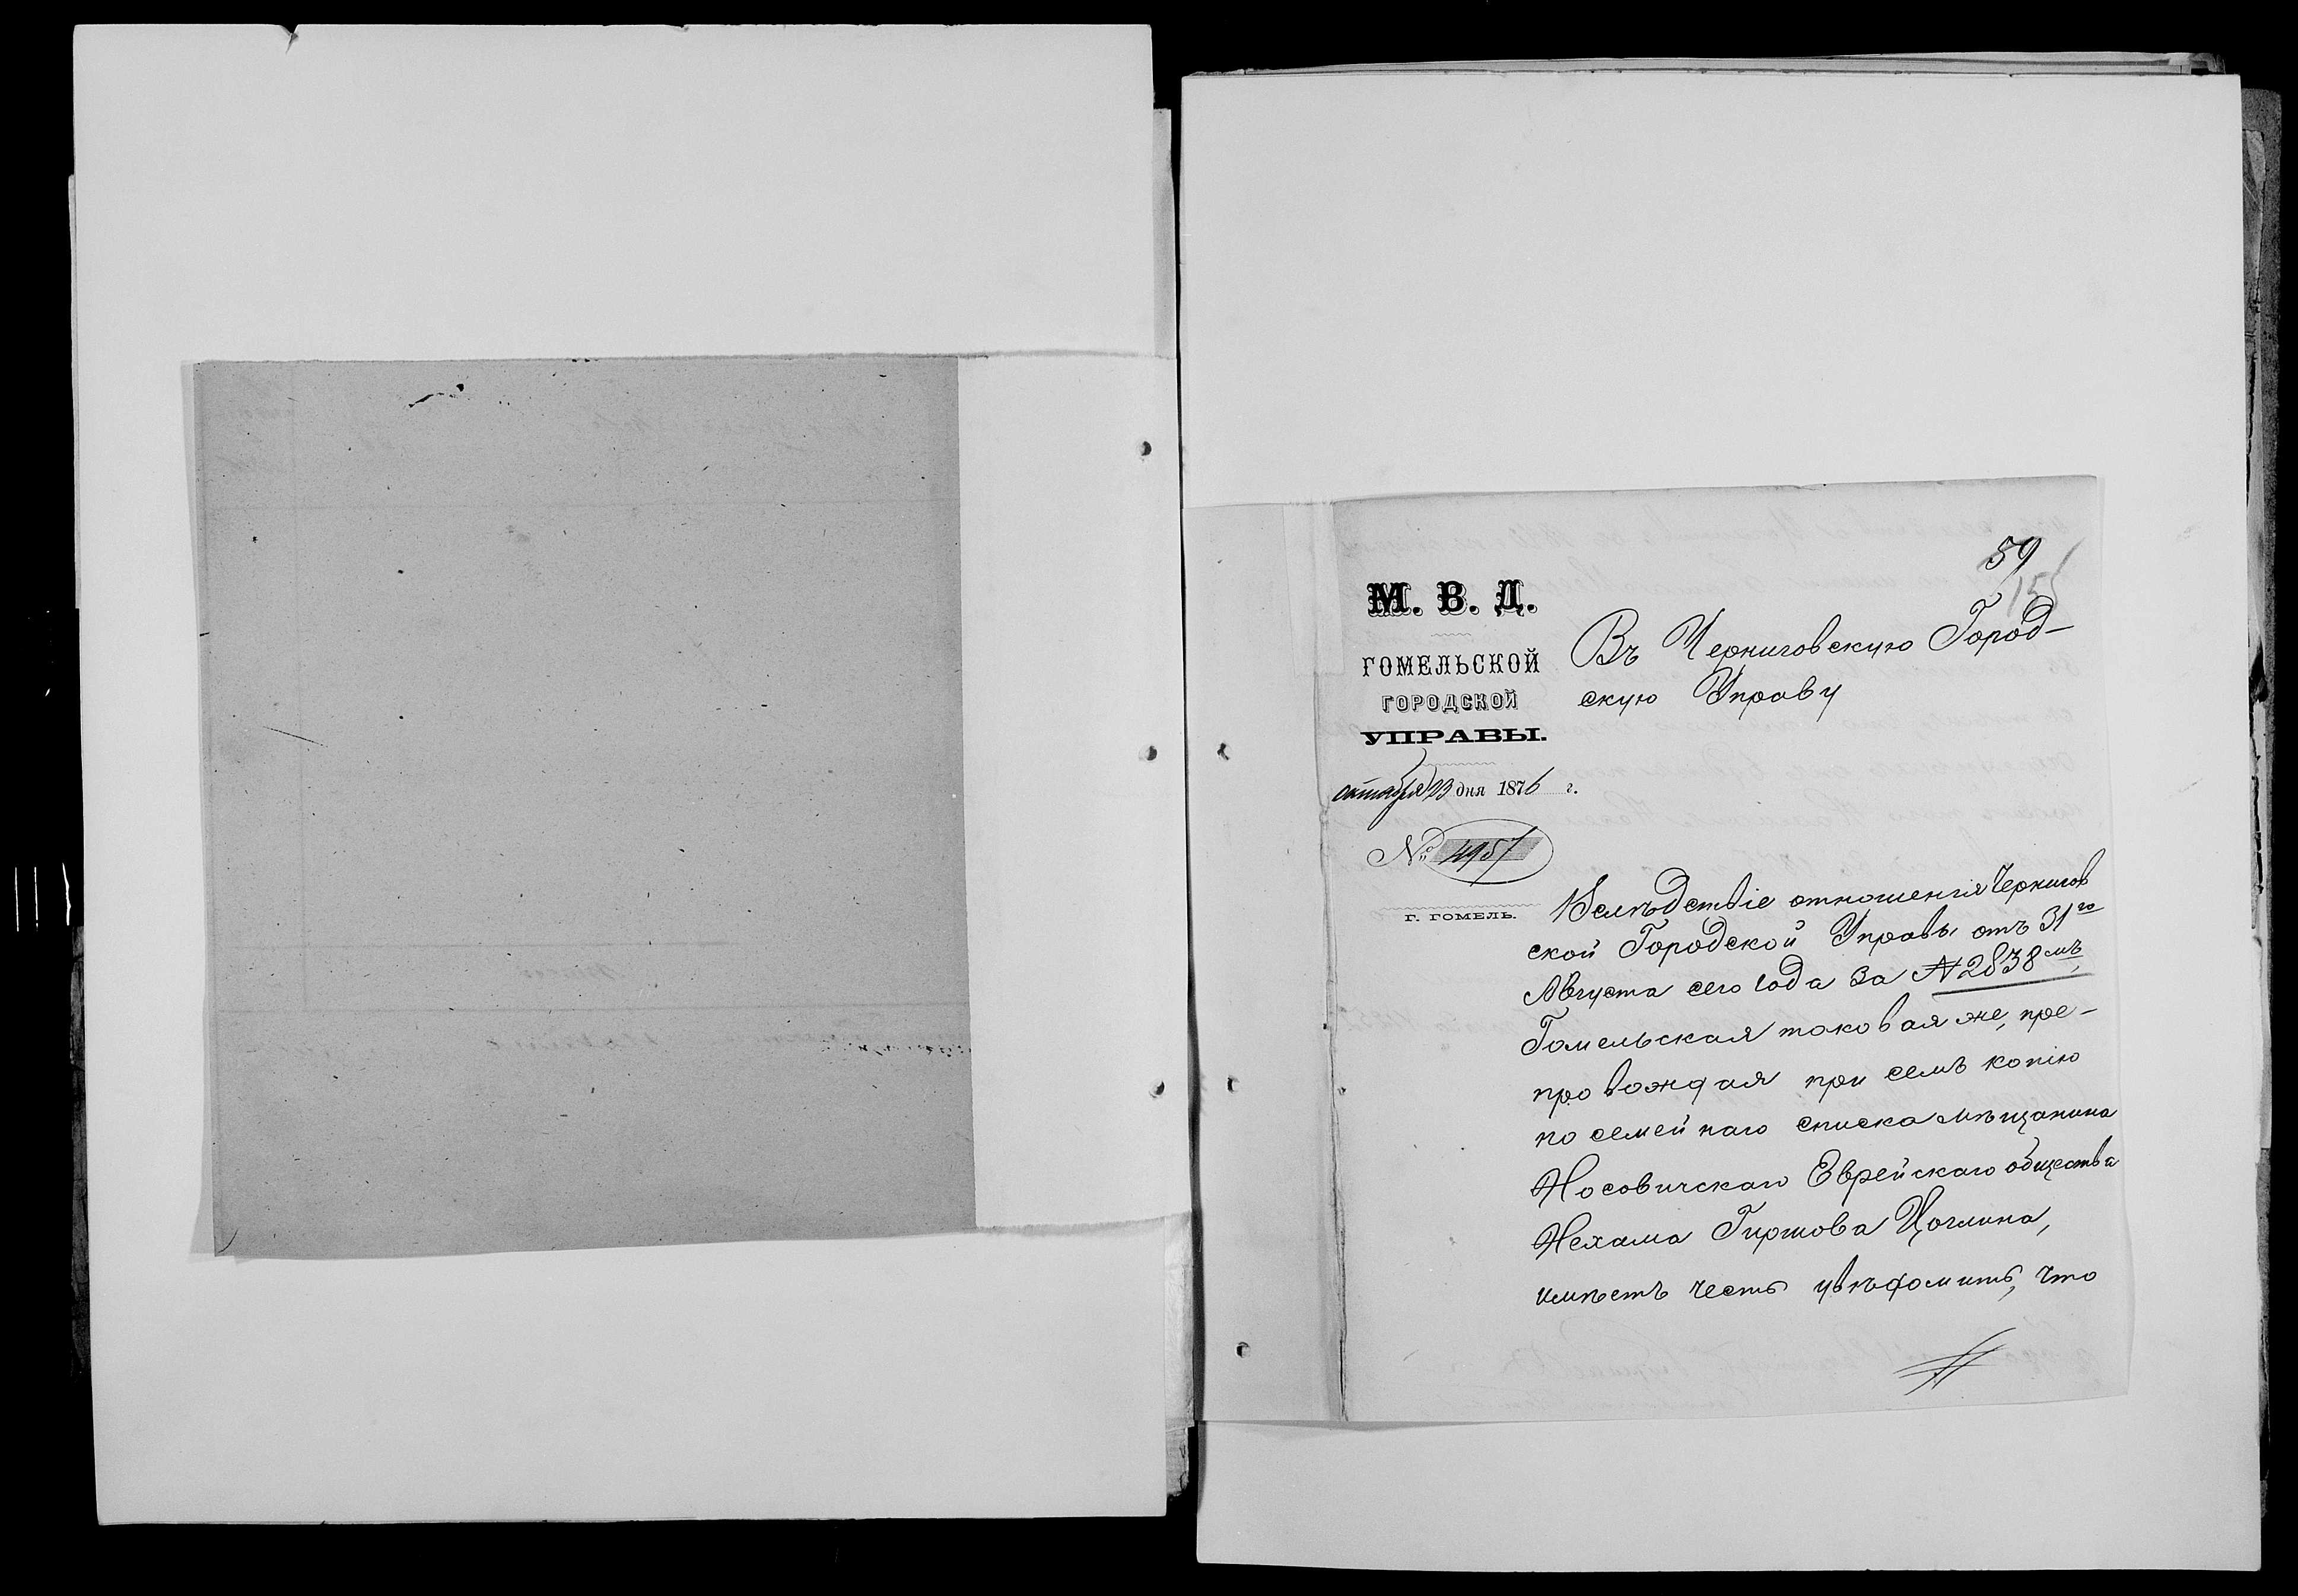 59
155
М. В. Д.
ГОМЕЛЬСКОЙ
ГОРОДСКОЙ
УПРАВЫ.
октября 23 дня 1876 г.
№ 4957
Г. ГОМЕЛЬ.
Въ Черниговскую Город-
скую Управу
Вслѣдствіе отношенія Чернигов
ской Городской Управы отъ 31го
Августа сего года за № 2838мъ,
Гомельская таковая же, пре-
провождая при семъ копію
посемейнаго списка мѣщанина
Носовичскаго Еврейскаго общества
Нехама Гиршова
имѣетъ честь увѣдомить, что